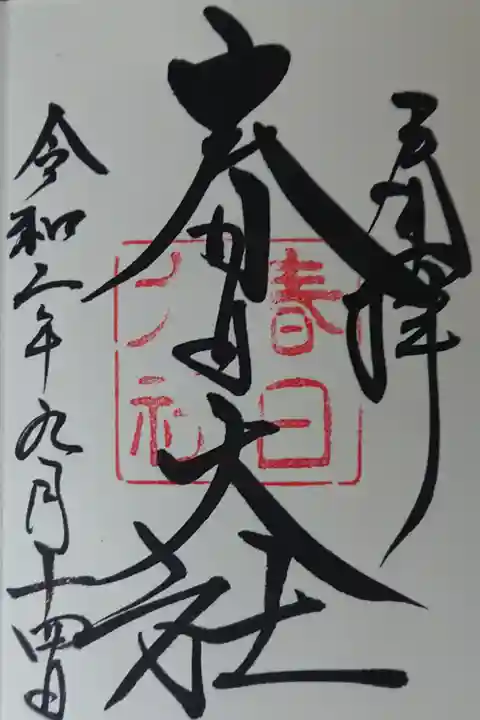 奉拝
春日大社
令和二年九月十四日
春日
大社